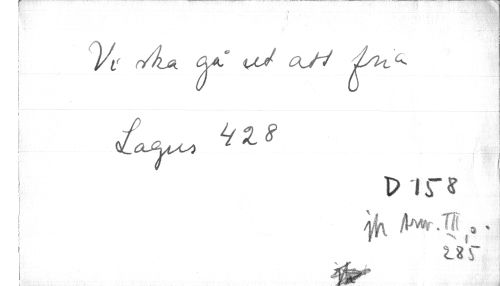 Vi ska gå ut att fria
Lagus 428
D 158
jfr Arw. III,
285